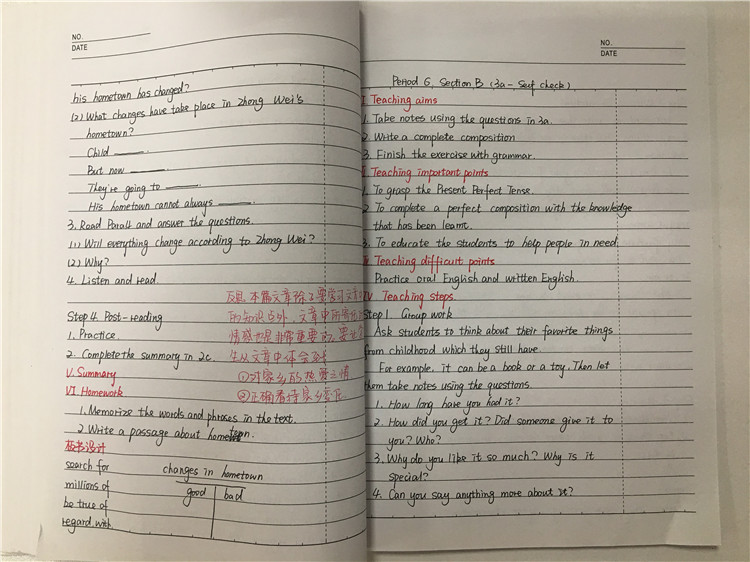 NO.
DATE
his hometown has changed?
(2) What changes have take place in Zhong Wei's
hometown?
Child
But now
They're going to
His hometown cannot always
3. Read Para4 and answer the questions.
(1) Will everything change according to Zhong Wei?
(2) Why?
4. Listen and read.
反思: 本篇文章除了要学习文章中
的知识点外, 文章中所
Step 4. Post-reading
1. Practice.
情感也是非常重要的, 要
2. Complete the summary in 2c.
生从文章中体会
V. Summary
①对家乡的热爱之情
VI. Homework
②正确看待家乡变化
1. Memorize the words and phrases in the text.
2 Write a passage about hometown.
板书设计
search for
changes in hometown
millions of
good bad
be true of
regard.with.
NO.
DATE
Period 6. Section B (3a- Self check)
I. Teaching aims
1. Take notes using the questions in 3a.
2. Write a complete composition
3. Finish the exercise with grammar.
II Teaching important points
1. To grasp the Present Perfect Tense.
2 To complete a perfect composition with the knowledge
that has been learnt.
3. To educate the students to help people in need.
III Teaching difficult points
Practice oral English and written English.
IV Teaching steps.
Step 1. Group work
Ask students to think about their favorite things
from childhood which they still have.
For example, it can be a book or a toy. Then let
them take notes using the questions.
1. How long have you had it?
2. How did you get it? Did someone give it to
you? Who?
3. Why do you like it so much? Why is it
special?
4. Can you say anything more about it?